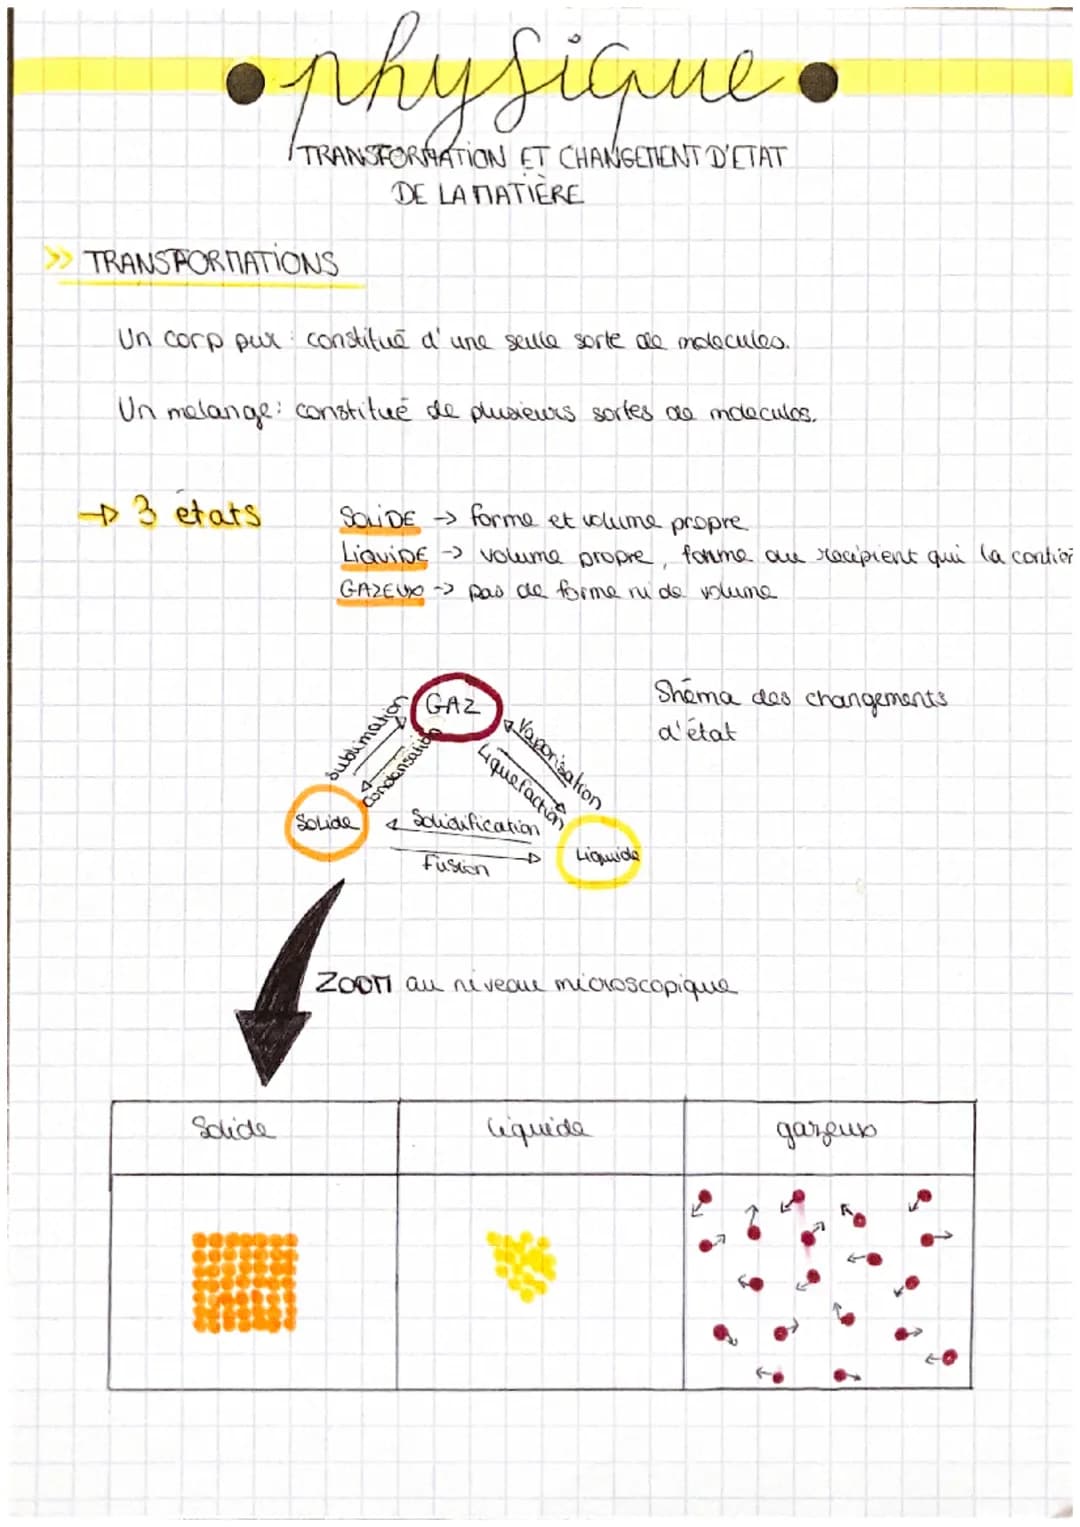 physique
TRANSFORMATION ET CHANGEMENT D'ETAT
DE LA MATIÈRE
>> TRANSFORMATIONS
Un corp pur : constitué d'une seule sorte de molecules.
Un melange : constitué de plusieurs sortes de molecules.
→ 3 états
SOLIDE → forme et volume propre
LIQUIDE → volume propre, forme au recipient qui la contien
GAZEUX → pas de forme ni de volume
GAZ
Shéma des changements
d'état
Sublimation
Condensation
Vaporisation
Liquefaction
Solide
Solidification
Fusion
Liquide
ZOOM au niveau microscopique
Solide
liquide
gazeux